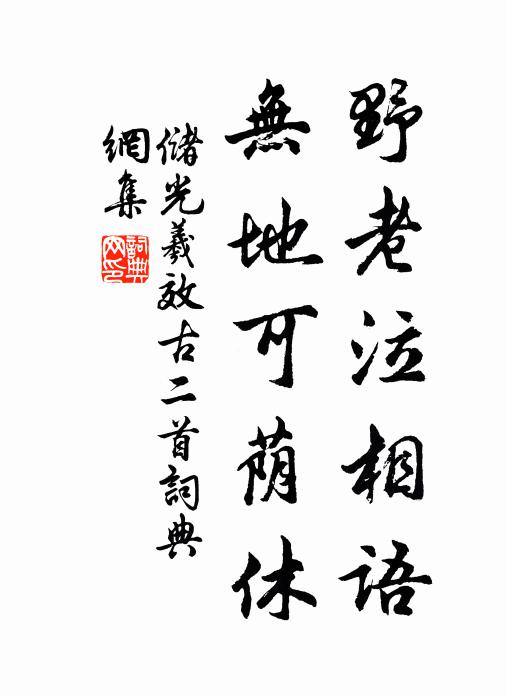 野老泣相語
無地可蔭休
儲光羲效古二首詞典
網集
詞典
网印